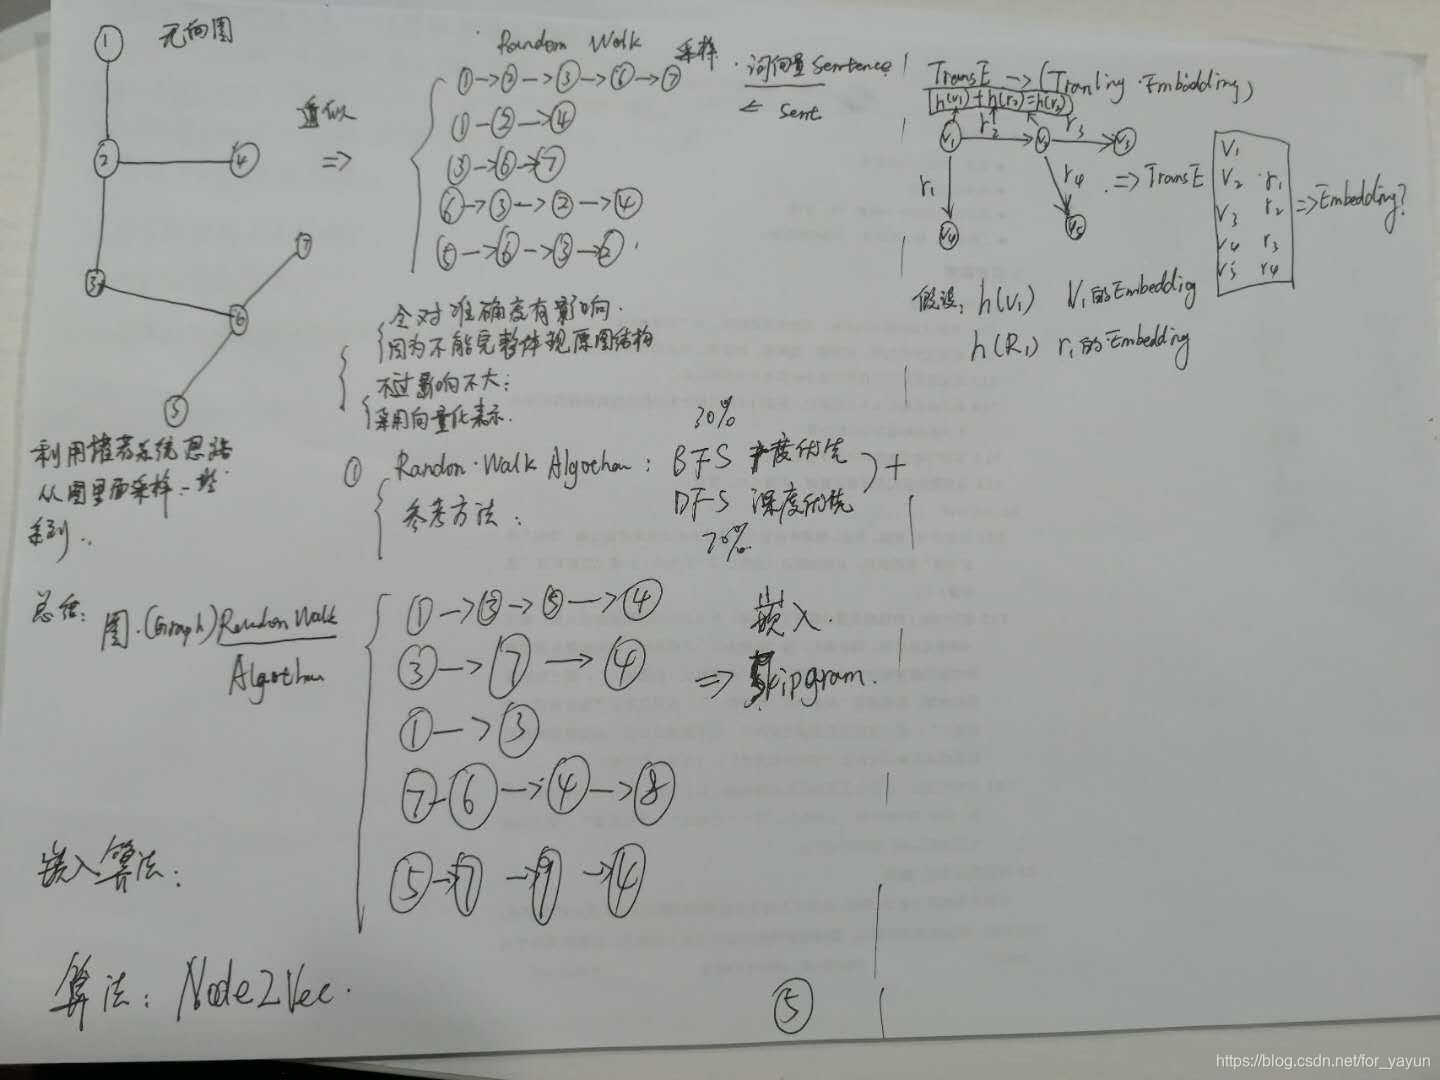 无向图
①
②
④
③
⑦
⑥
⑤
近似
=>
利用推荐系统思路
从图里面采样一些
系列..
Random Walk 采样
①->②->③->⑥->⑦
①-②->④
③->⑥->⑦
⑥->③->②->④
⑤->⑥->③->②.
词向量 Sentence
Sent
会对准确度有影响.
因为不能完整体现原图结构
不过影响不大;
采用向量化表示.
① Randon·Walk Algothm: BFS 广度优先
30%
参考方法: DFS 深度优先
70%
+
总结: 图·(Graph) Random Walk
Algothm
①->③->⑤->④
③->⑦->④
①->③
⑦-⑥->④->⑧
⑤->⑦->⑨->④
嵌入
=> Skipgram.
嵌入算法:
算法: Node2Vec.
⑤
TransE -> (Tranling Embedding)
h(v1)+h(r2)=h(v2)
V1 r2 V2 r3 V3
r1 r4
V4 V5
=> TransE
V1
V2 r1
V3 r2
r4 r3
r5 r4
=>Embedding?
假设: h(V1) V1的Embeddig
h(R1) r1的Embedding
https://blog.csdn.net/for_yayun